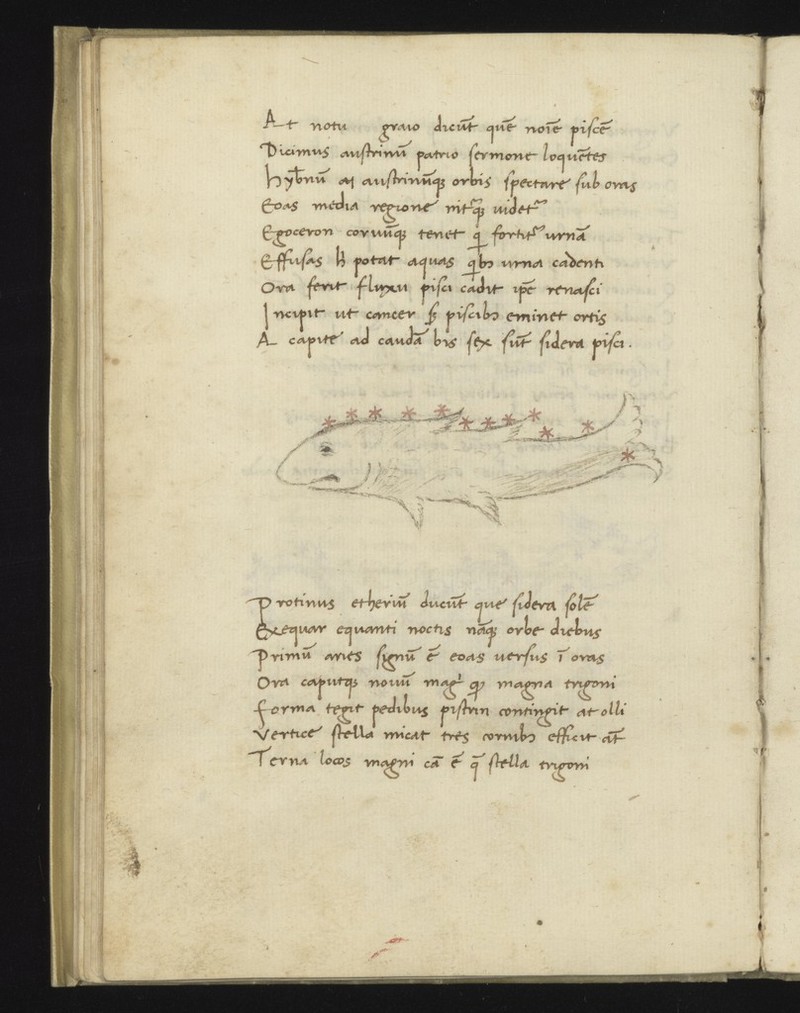 At notu graio dicūt quē noīe piscē
Dicimus austrinū patrio sermone loquētes
Hyb̄nū austrinūq; orbis spectare sub oras
Eoas media regione nitq; uidet
Egoceron coruūq; tenet q fortit urnā
Effusas h potat aquas qb; urna cadenti
Ora ferit fluxu pisci cadit ip̄e renasci
Incipit ut cancer s; piscib; eminet ortis
A capite ad caudā bis sex sūt sidera pisci.
Protinus etheriū ducūt que sidera solē
Exequar equanti noctis nāq; orbe diebus
Primū aries signū ē eoas uersus ī oras
Ora caputq; nouū mag q magna trigoni
Forma tegit pedibus pistrin contingit at olli
Vertice stella micat tres cornib; efficit at̄
Terna locos magni cā ē q̄ stella trigoni